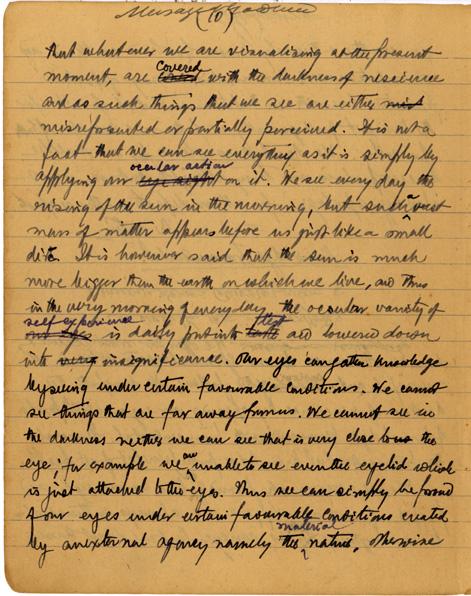 Message of Godhead
(10)
that whatever we are visualising at the present
Covered
moment, are with the darkness of nescience
and as such things that we see are either mist
misrepresented or partially perceived. It is not a
fact that we can see everything as it is simply by
ocular action
applying our eye sight on it. We see every day the
rising of the sun in the morning, but such a vast
mass of matter appears before us just like a small
disc. It is however said that the sun is much
more bigger than the earth on which we live, and thus
in the very morning of every day the ocular variety of
self experience test
is daily put into and lowered down
into very insignificance. Our eyes can gather knowledge
by seeing under certain favourable conditions. We cannot
see things that are far away from us. We cannot see in
the darkness neither we can see that is very close to us the
eye; for example we are unable to see even the eyelid which
is just attached to the eyes. Thus we can simply be proud
of our eyes under certain favourable conditions created
material
by an external agency namely the nature, otherwise